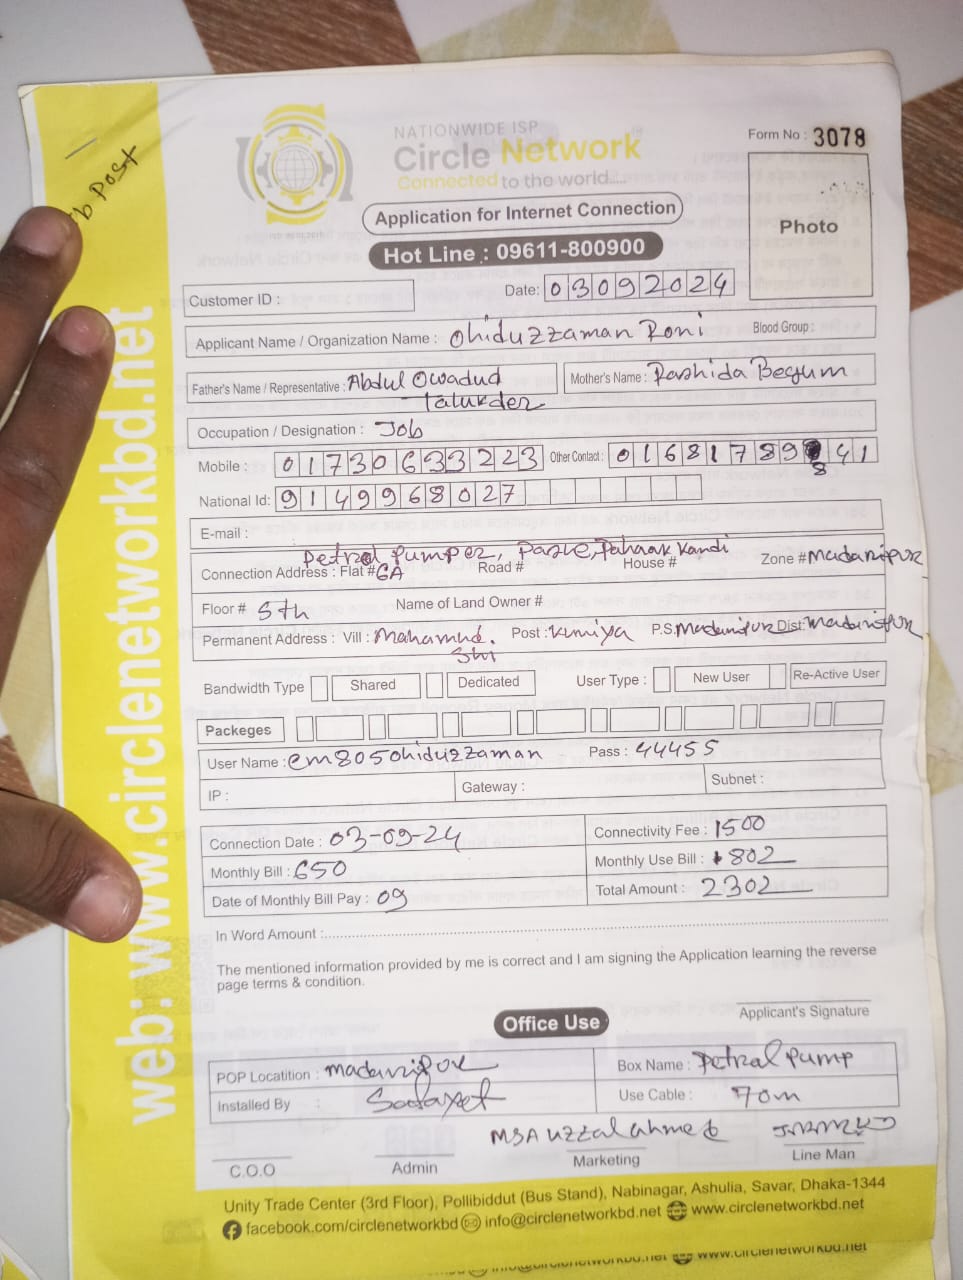 b Post
NATIONWIDE ISP
Circle Network
Connected to the world.....
Form No : 3078
Photo
Application for Internet Connection
Hot Line : 09611-800900
Customer ID :
Date: 03092024
Applicant Name / Organization Name : Ohiduzzaman Roni Blood Group :
Father's Name / Representative : Abdul Owadud Talukder Mother's Name : Rashida Begum
Occupation / Designation : Job
Mobile : 01730633223 Other Contact : 01681789841
National Id: 9149968027
E-mail :
Petrol Pumper, Pasre, Pahaar Kandi
Connection Address : Flat # 6A Road # House # Zone # Madaripur
Floor # 5th Name of Land Owner #
Permanent Address : Vill : Mahammd. Shi Post : Kuniya P.S. Madaripur Dist: Madaripur
Bandwidth Type Shared Dedicated User Type : New User Re-Active User
Packeges
User Name : cm805ohiduzzaman Pass : 44455
IP : Gateway : Subnet :
Connection Date : 03-09-24 Connectivity Fee : 1500
Monthly Bill : 650 Monthly Use Bill : 802
Date of Monthly Bill Pay : 09 Total Amount : 2302
In Word Amount :
The mentioned information provided by me is correct and I am signing the Application learning the reverse
page terms & condition.
Applicant's Signature
Office Use
POP Locatition : Madaripur Box Name : Petral Pump
Installed By : Sadayet Use Cable : 70m
MSA Uzzal Ahmed
C.O.O Admin Marketing Line Man
Unity Trade Center (3rd Floor), Pollibiddut (Bus Stand), Nabinagar, Ashulia, Savar, Dhaka-1344
facebook.com/circlenetworkbd info@circlenetworkbd.net www.circlenetworkbd.net
info@circlenetworkbd.net www.circlenetworkbd.net
web: www.circlenetworkbd.net